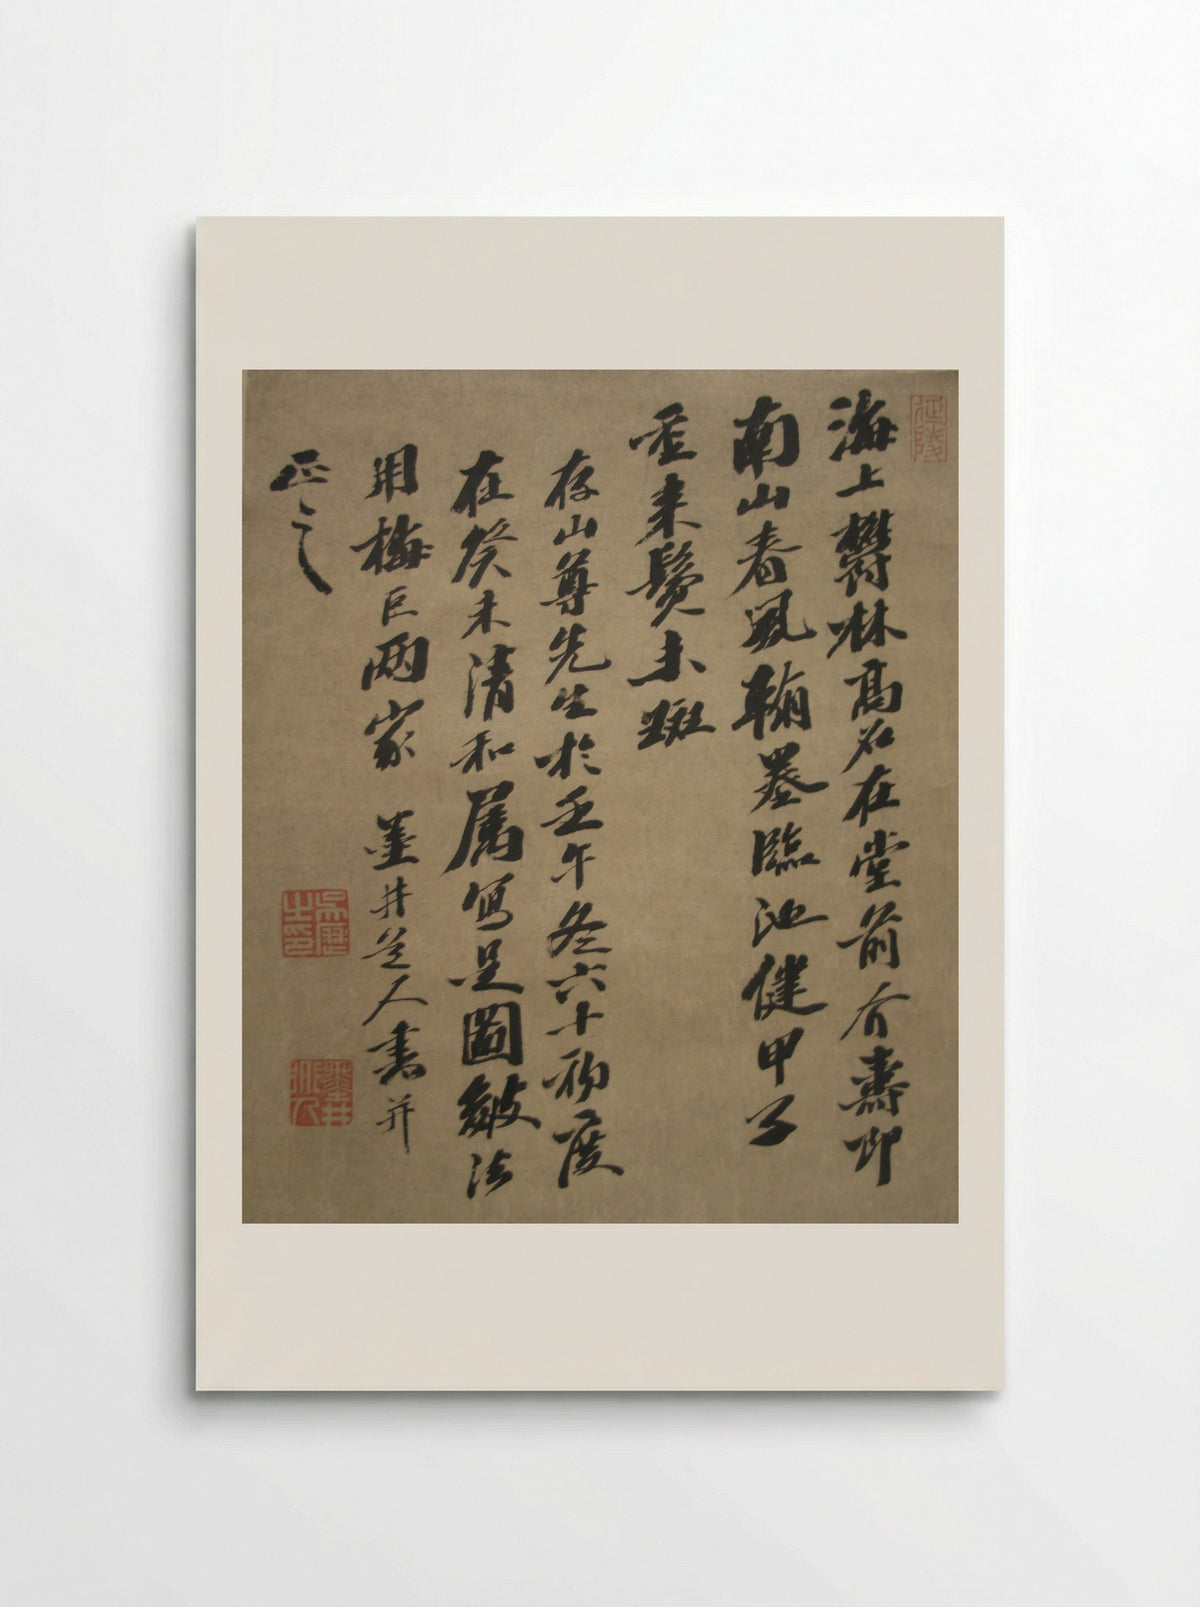 延陵
海上欝林高名在堂前介壽即
南山春風翰墨臨池健甲子
重来鬓未斑
存山尊先生於壬午冬六十初度
在癸未清和属寫是圖皴法
用梅巨兩家　墨井道人書并
正之
吳歷之印